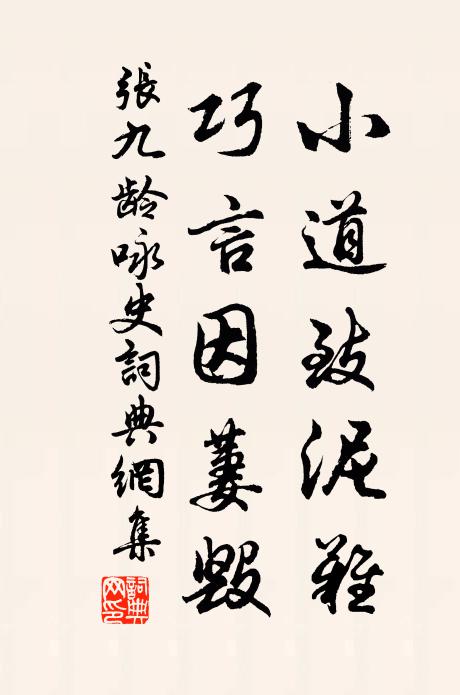 小道致泥難
巧言因萋毀
張九齡咏史詞典網集
詞典网印